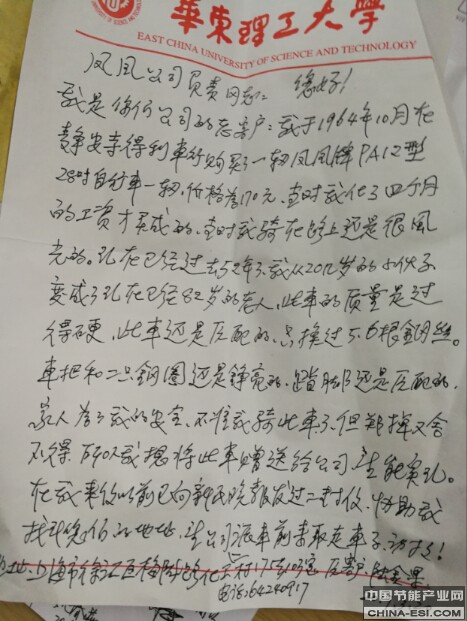 華东理工大学
EAST CHINA UNIVERSITY OF SCIENCE AND TECHNOLOGY
凤凰公司负责同志: 您好!
我是你们公司的老客户: 我于1964年10月在
静安寺得利车行购买了一辆凤凰牌PA12型
28吋自行车一辆, 价格为170元, 当时我化了四个月
的工资才买成的, 当时我骑在路上还是很风
光的。现在已经过去52年了, 我从20几岁的小伙子
变成了现在已经82岁的老人, 此车的质量是过
得硬, 此车还是原配的, 只换过5.6根钢丝。
车把和二只钢圈还是锃亮的, 踏脚还是原配的,
家人为了我的安全, 不准我骑此车了, 但郑掉又舍
不得, 所以我想将此车赠送给公司, 望能实现。
在我来信以前已向新民晚报发过二封信, 协助我
找到你们的地址, 望公司派车前来取走车子, 谢谢!
地址: 上海市徐汇区梅陇路
电话: 64240917
中国节能产业网
WWW.CHINA-ESI.COM